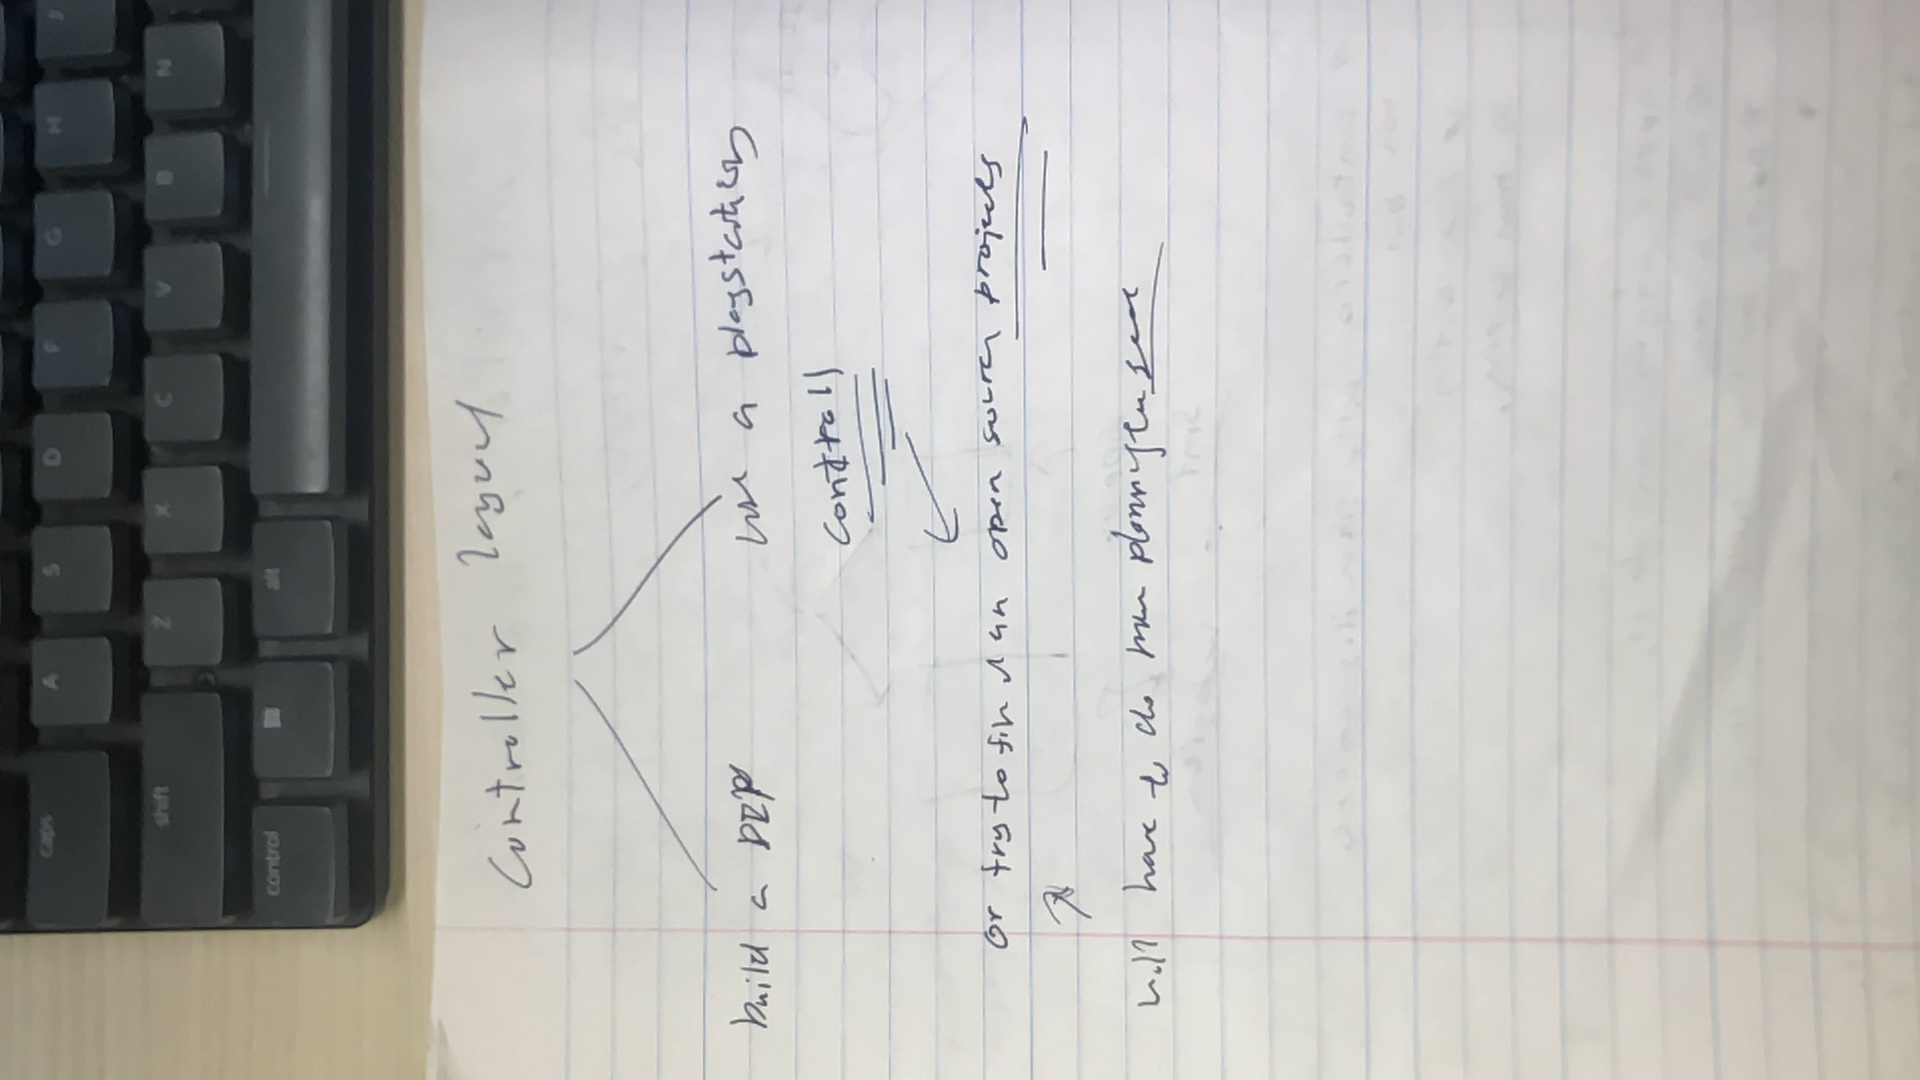 caps A S D F G H J
shift Z X C V B N
control alt
Controller layout
build a use a playstation
controll
or try to find an open source projects
will have to do